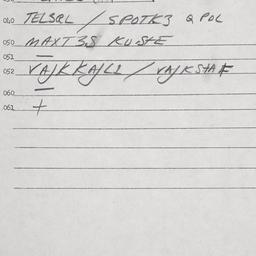 040 TELSQL / SPOTK3 Q POL
050 MAXT3S KUSTE
051
052 VAJKKAJL1 / VAJKSTAF
060
061 +